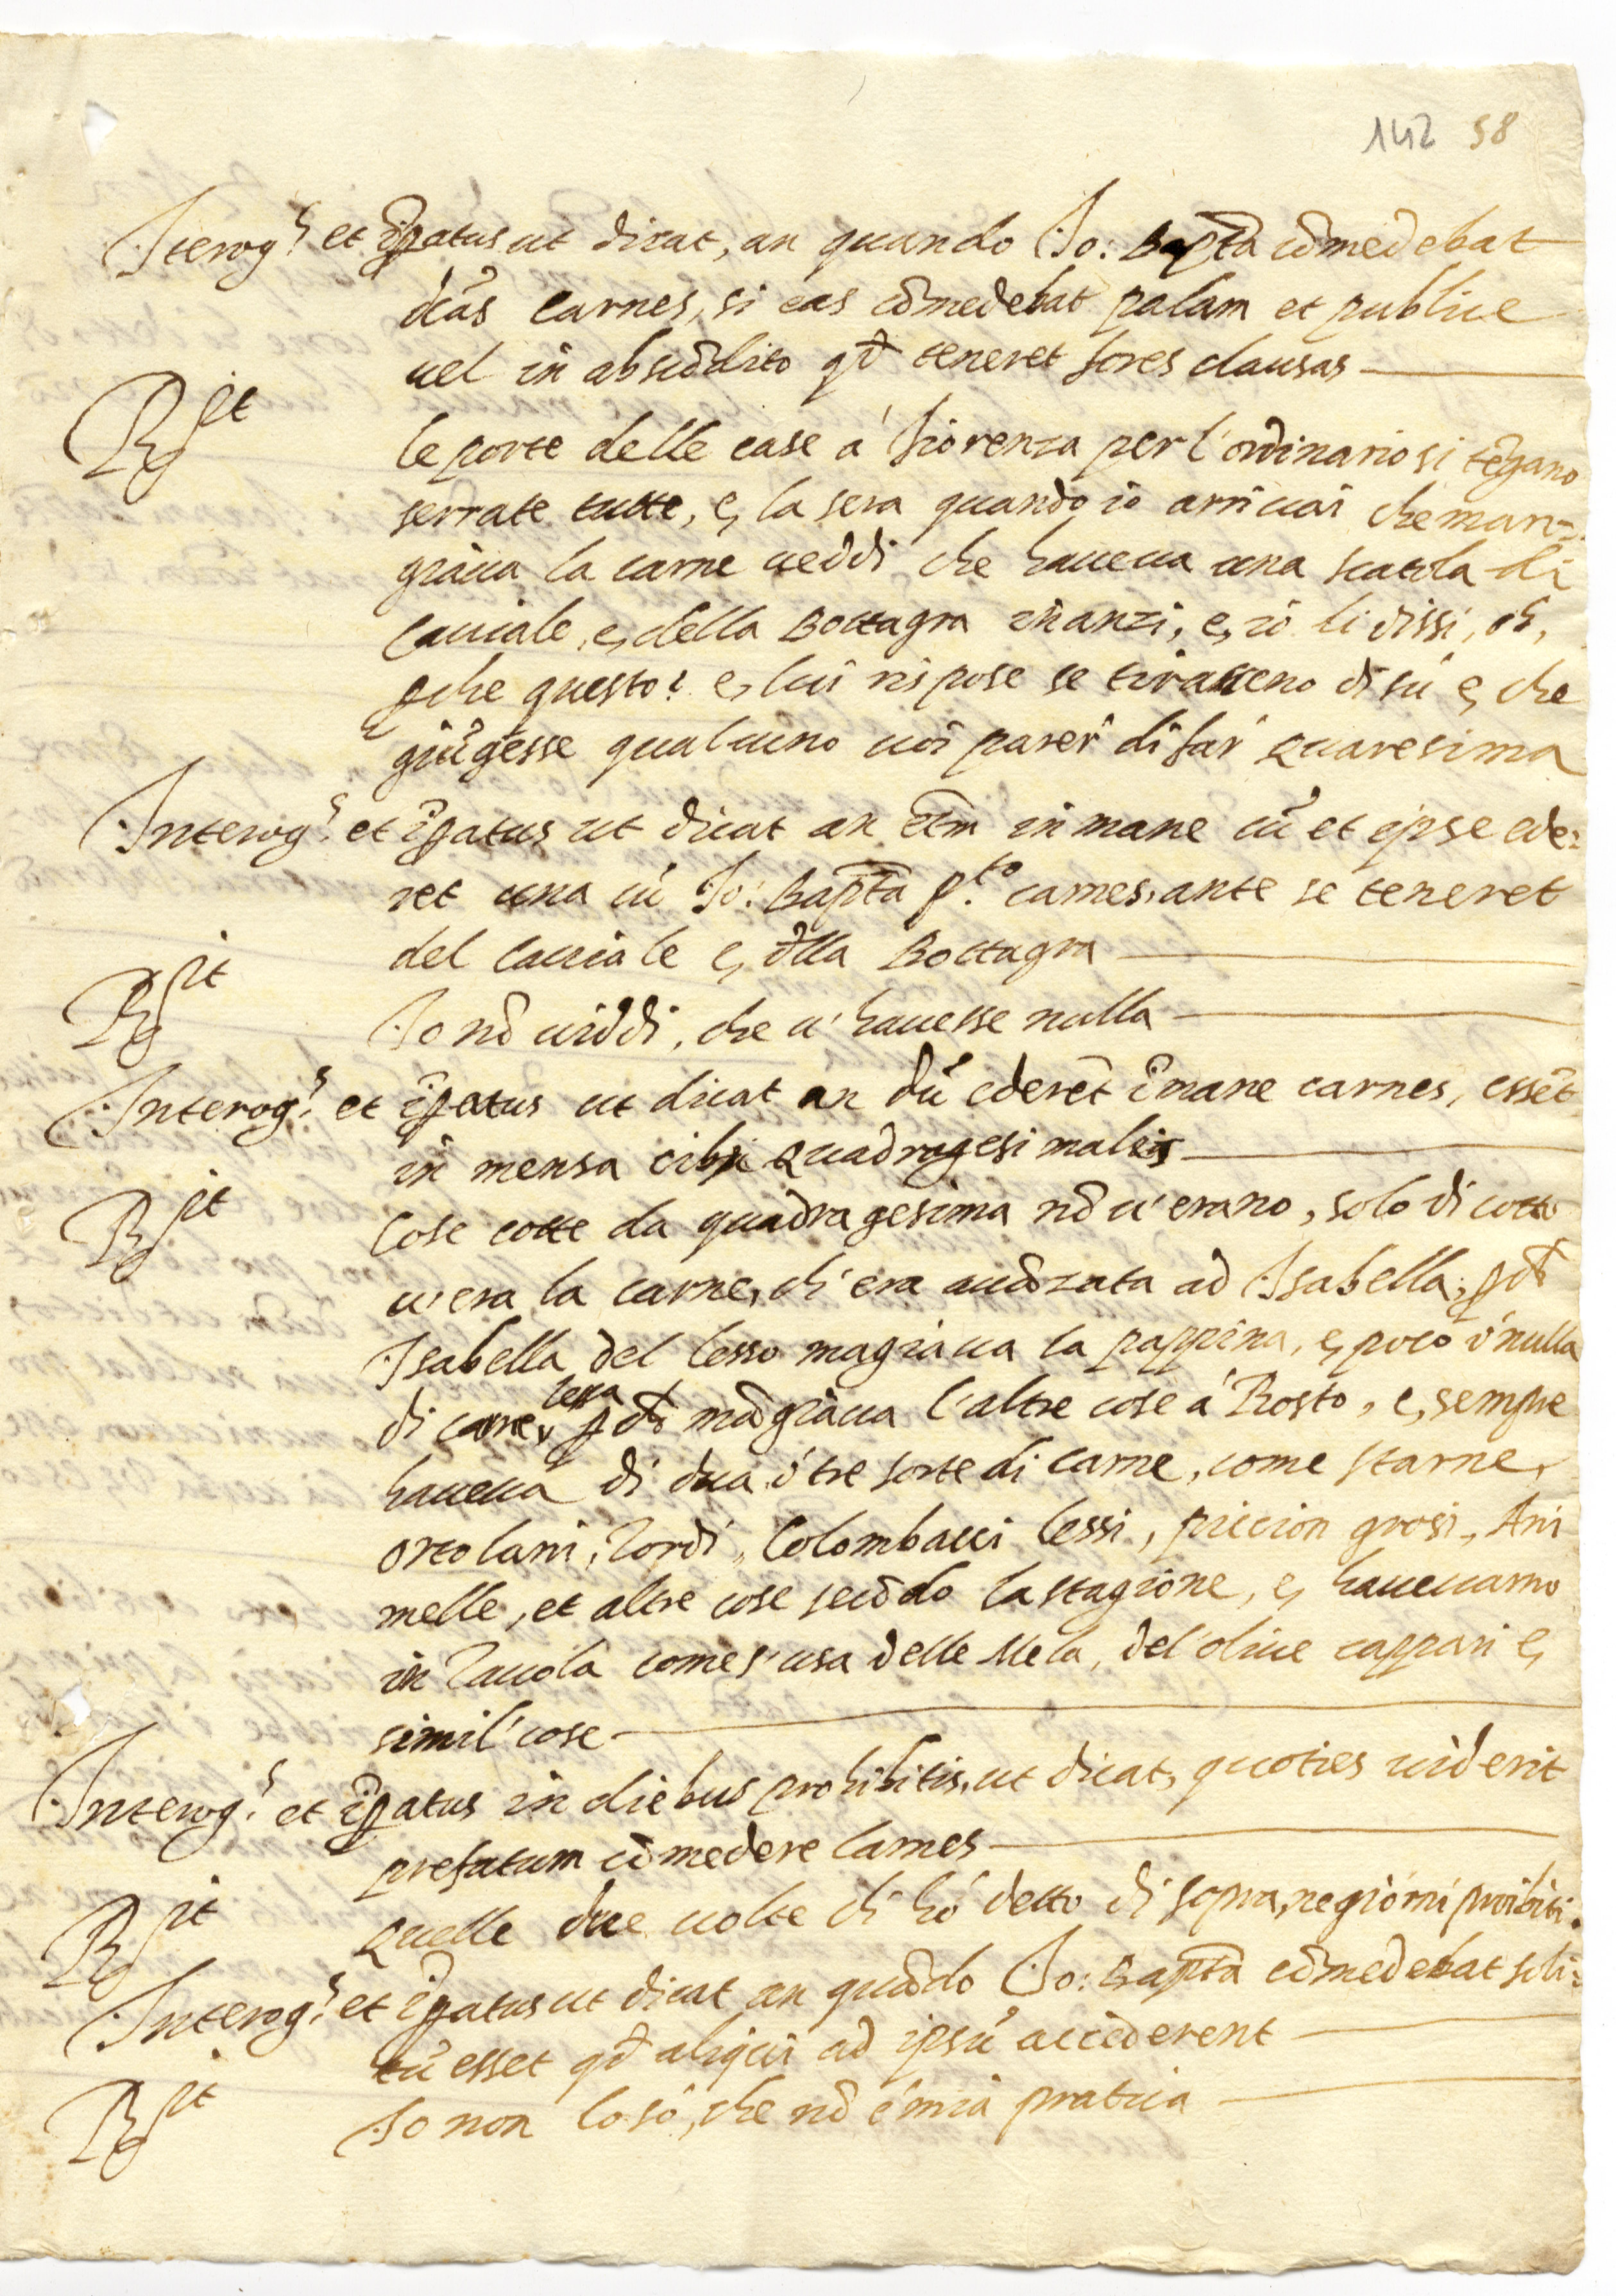 142 58
Iterog.s et īp̄atus ut dicat, an quando Jo: Bap̄ta cōmedebat
dc̄as carnes, si eas cōmedebat palam et publice
uel in abscōdito qd̄ teneret fores clausas
R.it
le porte delle case a' fiorenza per l'ordinario si tēgano
serrate tutte, e, la sera quando io arriuai che man-
giaua la carne ueddi che haueua una scatola di
Cauiale, e, della Bottagra inanzi, e, io li dissi, oh,
p̱che questo? e, lui rispose se tirasseno di sù e, che
giūgesse qualcuno uoi parer̄ di far quaresima
Interog.s et īp̄atus ut dicat an etm̄ in mane cū et ipse ede-
ret una cū Jo: Bap̄ta p.to carnes, ante se teneret
del Cauiale e, d̄lla Bottagra
R.it
Io nō uiddi, che u' hauesse nulla
Interog.s et īp̄atus ut dicat an dū ederēt ī mane carnes, essēt
in mensa cibi Quadragesimalis
R.it
Cose cotte da quadragesima nō u' erano, solo di cotto
u'era la carne, ch' era auāzata ad Isabella, p̱ch̄
Isabella del lesso magiaua la pappina, e, poco o' nulla
di carne, lessa p̱ch̄ māgiaua l'altre cose a' Rosto, e, sempre
haueua di dua o' tre sorte di carne, come starne,
ortolani, Tordi, Colombacci lessi, piccion grosi, Ani
melle, et altre cose secōdo la stagione, e, haueuamo
in Tauola come s' usa delle Mela, del' oliue cappari e,
simil' cose
Interog.s et īp̄atus in diebus prohibitis, ut dicat, quoties uiderit
prefatum cōmedere Carnes
R.it
Quelle due uolte ch hó detto di sopra, ne giorni proibiti.
Interog.s et īp̄atus ut dicat an quādo Jo: Bap̄ta cōmedebat soli-
tū esset qd̄ aliqui ad ipsū accederent
R.it
Io non lo só, che nō é mia pratica